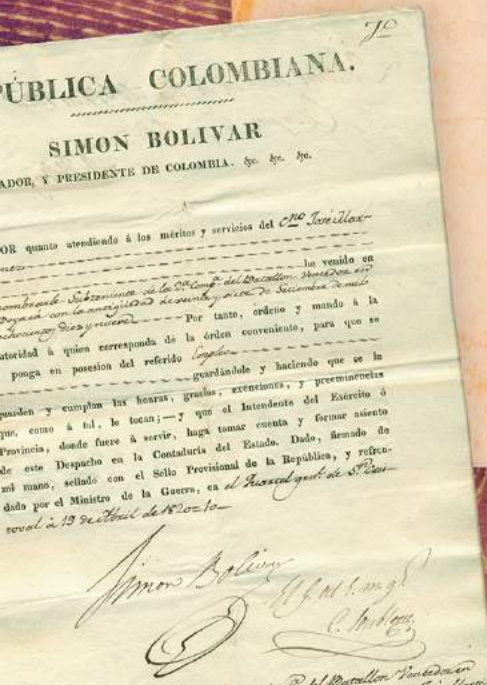 7º
PÚBLICA COLOMBIANA.
SIMON BOLIVAR
ADOR, Y PRESIDENTE DE COLOMBIA. &c. &c. &c.
OR quanto atendiendo á los méritos y servicios del Cno José Mar-
he venido en
nombrarle Subteniente de la 2ª Compª del Batallon Vencedor en
Boyacá con la antigüedad de veinte y siete de Setiembre de mil
ochocientos diez y nueve Por tanto, ordeno y mando á la
autoridad á quien corresponda dé la órden conveniente, para que se
ponga en posesion del referido Empleo
guardándole y haciendo que se le
guarden y cumplan las honras, gracias, exênciones, y preeminencias
que, como á tal, le tocan; — y que el Intendente del Exército ó
Provincia, donde fuere á servir, haga tomar cuenta y formar asiento
de este Despacho en la Contaduría del Estado. Dado, firmado de
mi mano, sellado con el Sello Provisional de la República, y refren-
dado por el Ministro de la Guerra, en el Quartel genl. de Sn Cris-
toval á 19 de Abril de 1820=10—
Simon Bolivar
C. Soublette
del Batallon Vencedor en